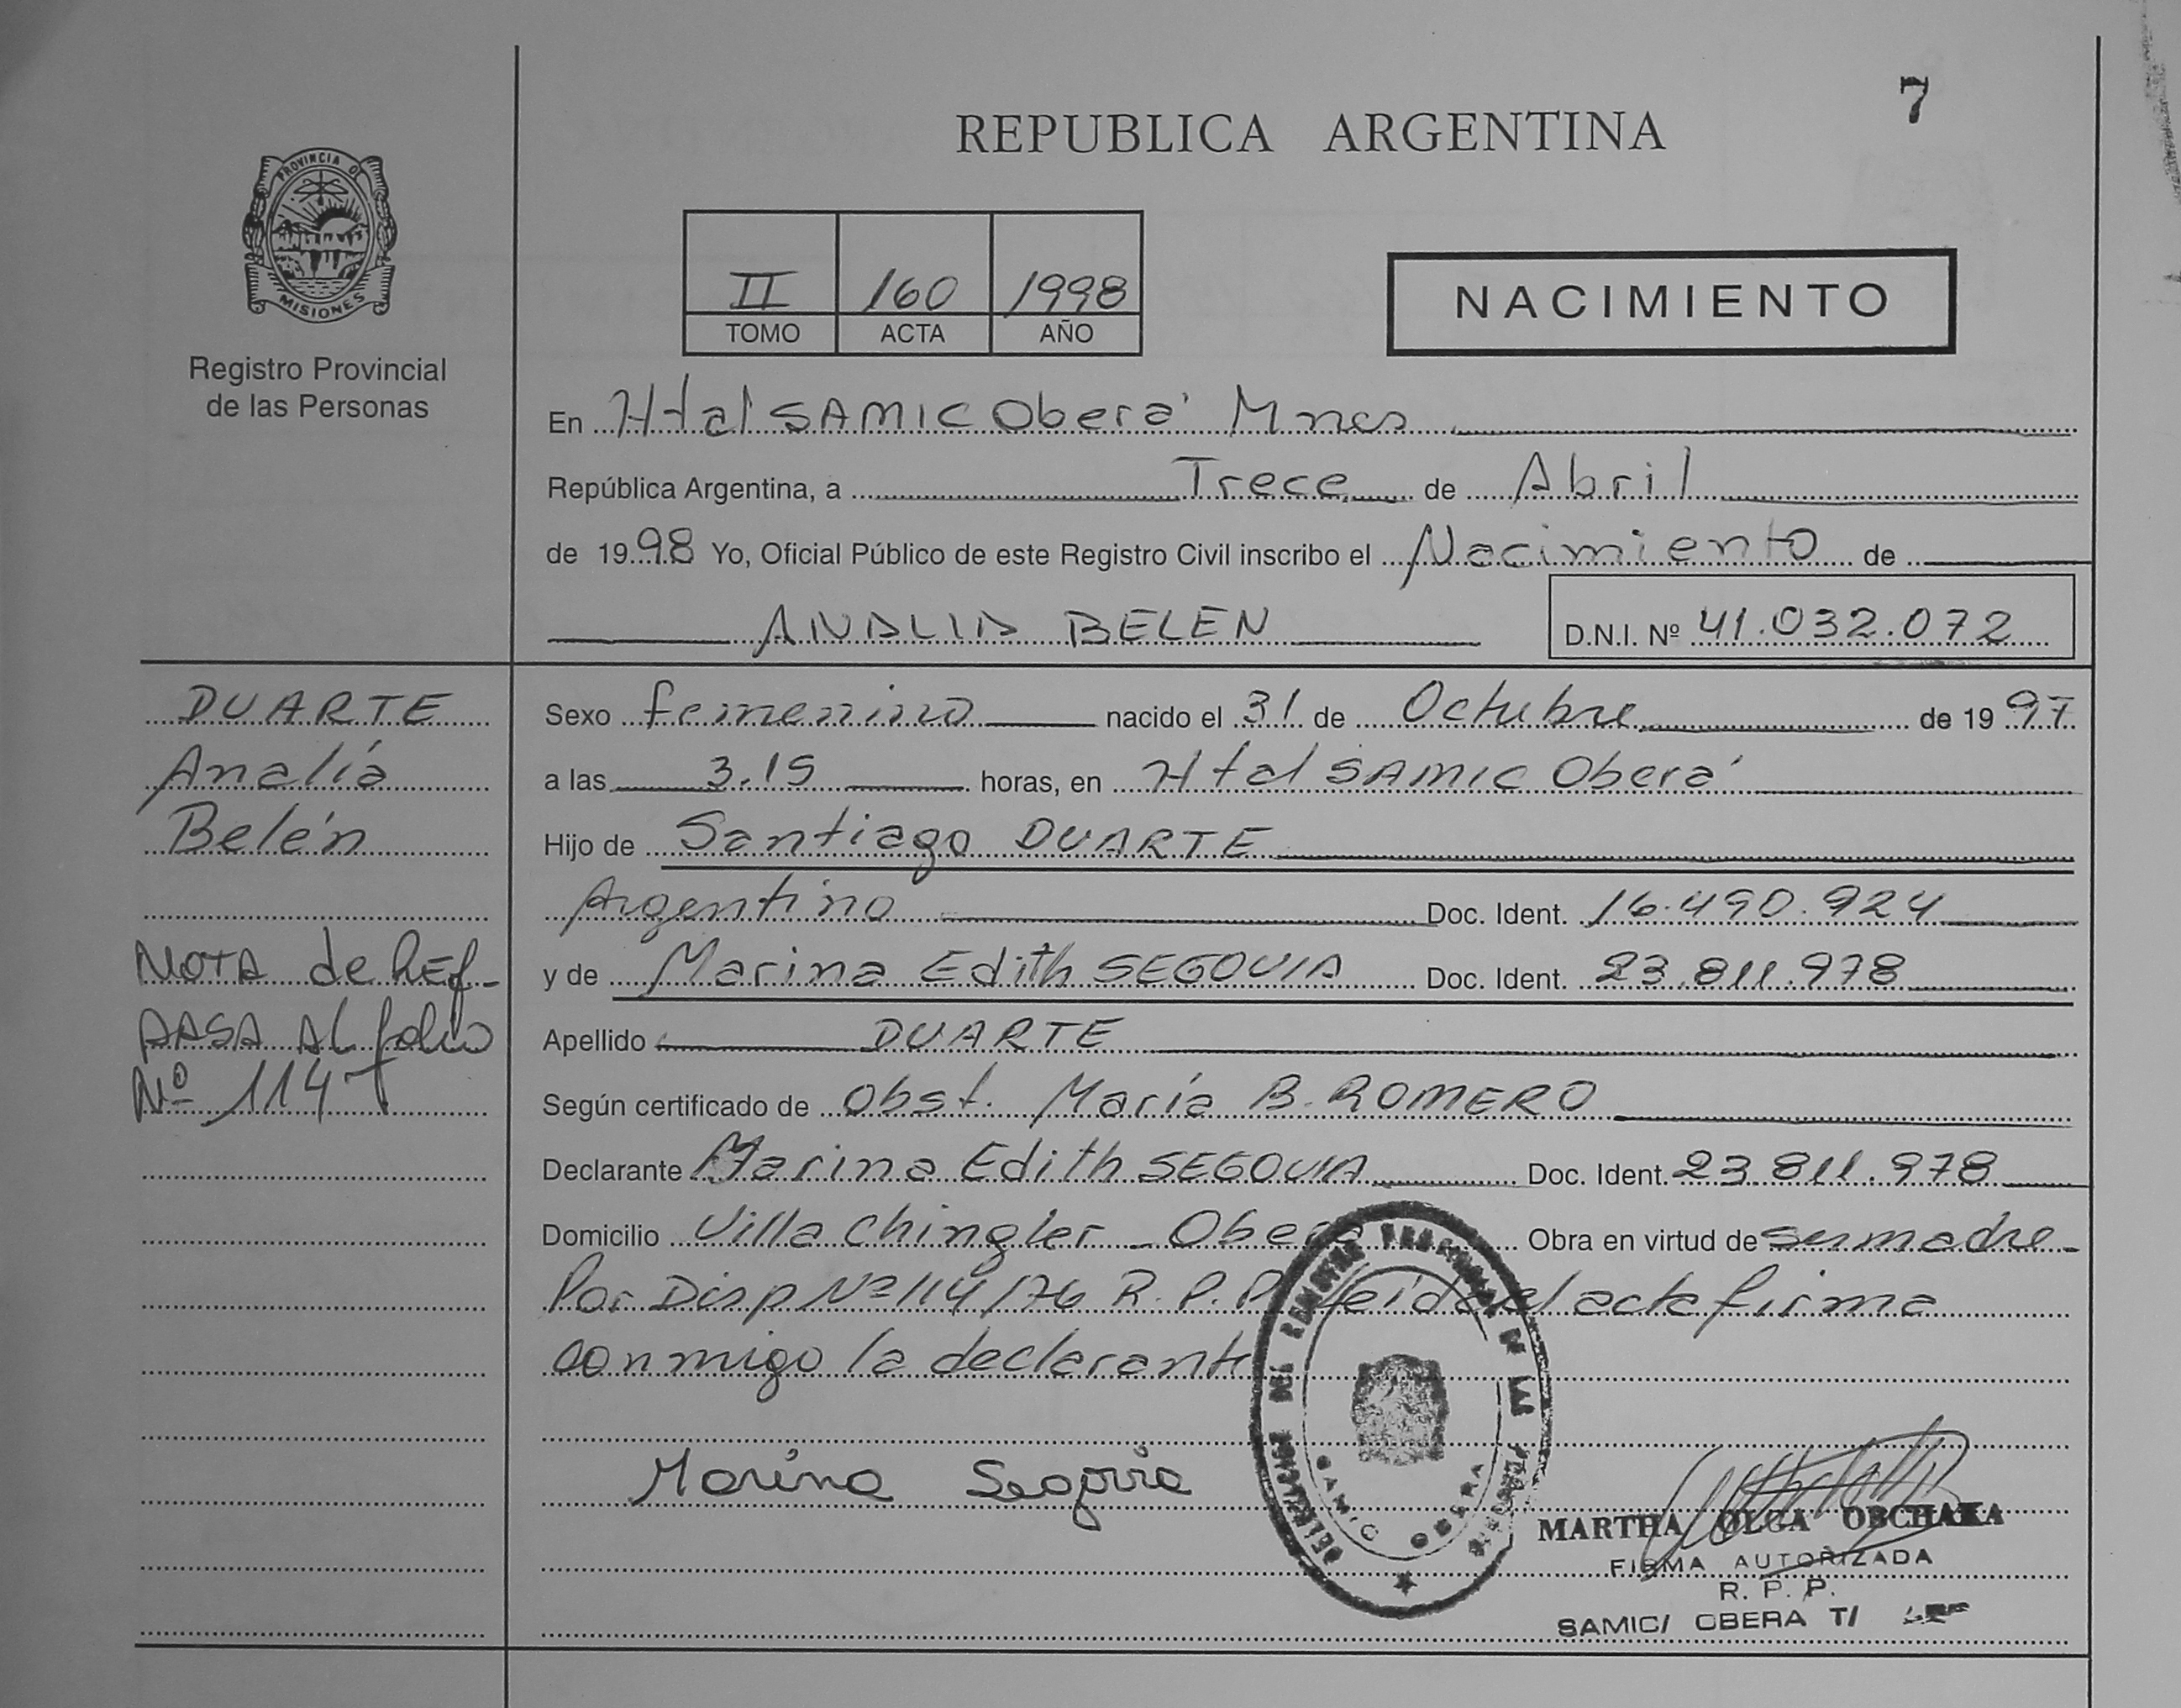 7
REPUBLICA ARGENTINA
PROVINCIA DE
MISIONES
Registro Provincial
de las Personas
II 160 1998
TOMO ACTA AÑO
NACIMIENTO
En Htal SAMIC Oberá Mnes
República Argentina, a Trece de Abril
de 1998 Yo, Oficial Público de este Registro Civil inscribo el Nacimiento de
ANALIA BELEN
D.N.I. Nº 41.032.072
DUARTE
Analía
Belén
NOTA de REf-
PASA AL folio
Nº 114
Sexo femenino nacido el 31 de Octubre de 1997
a las 3.15 horas, en Htal SAMIC Oberá
Hijo de Santiago DUARTE
Argentino Doc. Ident. 16.490.924
y de Marina Edith SEGOVIA Doc. Ident. 23.811.978
Apellido DUARTE
Según certificado de Obst. María B. ROMERO
Declarante Marina Edith SEGOVIA Doc. Ident. 23.811.978
Domicilio Villa Chingler - Oberá Obra en virtud de ser madre-
Por Disp Nº 114/76 R.P.P. leída el acta firma
conmigo la declarante
Marina Segovia
SAMIC OBERA
MARTHA OLGA OBCHAKA
FIRMA AUTORIZADA
R. P. P.
SAMIC/ OBERA T/